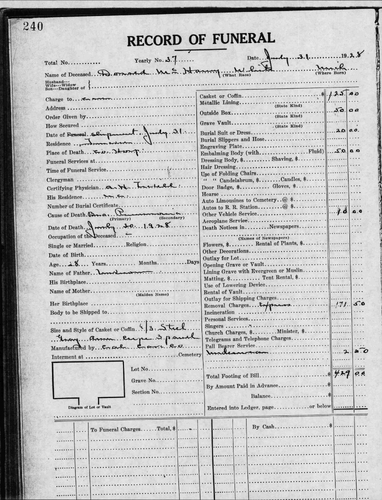 240
RECORD OF FUNERAL
Total No. Yearly No. 37 Date July 31 1928
Name of Deceased Donald White Mich
(What Born) (Where Born)
Husband
Wife
Son
Daughter of
Charge to
Address
Order Given by
How Secured
Date of Funeral shipment July 31
Residence
Place of
Funeral Services at
Time of Funeral Service
Clergyman
Certifying Physician
His Residence
Number of Burial Certificate
Cause of Death Pneumonia
(Primary) (Secondary)
Date of Death July 30 1928
Occupation of the Deceased
Single or Married Religion
Date of Birth
Age 28 Years Months Days
Name of Father Unknown
His Birthplace
Name of Mother
(Maiden Name)
Her Birthplace
Body to be Shipped to
Size and Style of Casket or Coffin 6/3 Steel
Gray
Manufactured by
Interment at Cemetery
Lot No.
Grave No.
Section No.
Diagram of Lot or Vault
Casket or Coffin $ 125 00
Metallic Lining
(State Kind)
Outside Box 50 00
(State Kind)
Grave Vault
(State Kind)
Burial Suit or Dress 20 00
Burial Slippers and Hose
Engraving Plate
Embalming Body (with Fluid) 50 00
Dressing Body, $ Shaving, $
Hair Dressing
Use of Folding Chairs
" " Candelabrum, $ Candles, $
Door Badge, $ Gloves, $
Auto Limousines to Cemetery @ $
Autos to R. R. Station @ $
Other Vehicle Service 10 00
Aeroplane Service
Death Notices in Newspapers
(Names of Newspapers)
Flowers, $ Rental of Plants, Etc.
Other Decorations
Outlay for Lot
Opening Grave or Vault
Lining Grave with Evergreen or Muslin
Matting, $ Tent Rental, $
Use of Lowering Device
Rental of Vault
Outlay for Shipping Charges
Removal Charges Express 171 50
Incineration
Personal Services
Singers
Church Charges, $ Minister, $
Telegrams and Telephone Charges
Pall Bearer Service
Underwear 2 50
Total Footing of Bill $ 429 00
By Amount Paid in Advance $
Balance $
Entered into Ledger, page or below
To Funeral Charges, Total, $ By Cash $